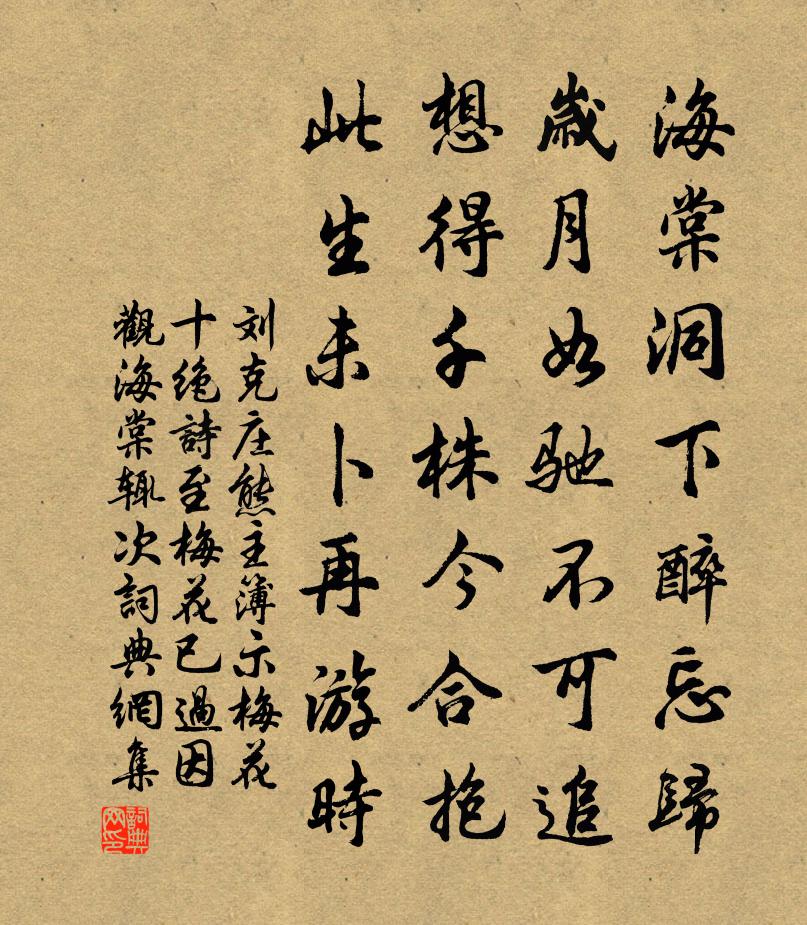 海棠洞下醉忘歸
歲月如馳不可追
想得千株今合抱
此生未卜再游時
刘克庄熊主簿示梅花
十绝詩至梅花已過因
觀海棠辄次詞典網集
詞典网印